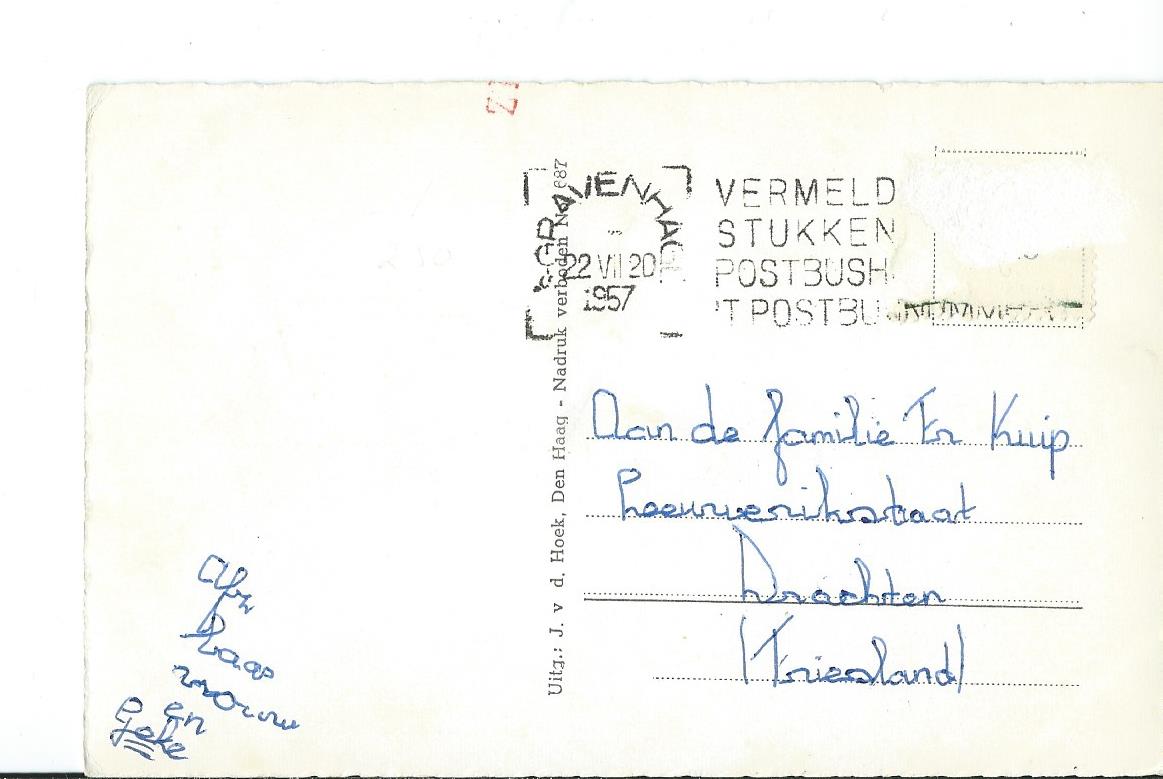 'S GRAVENHAGE
22 VII 20
1957
VERMELD
STUKKEN
POSTBUSH
'T POSTBU NUMMER
Uitg.: J. v d. Hoek, Den Haag - Nadruk verboden No 687
Aan de familie Fr Kuip
Leeuwerikstraat
Drachten
(Friesland)
Afz
vrouw
en
Geke